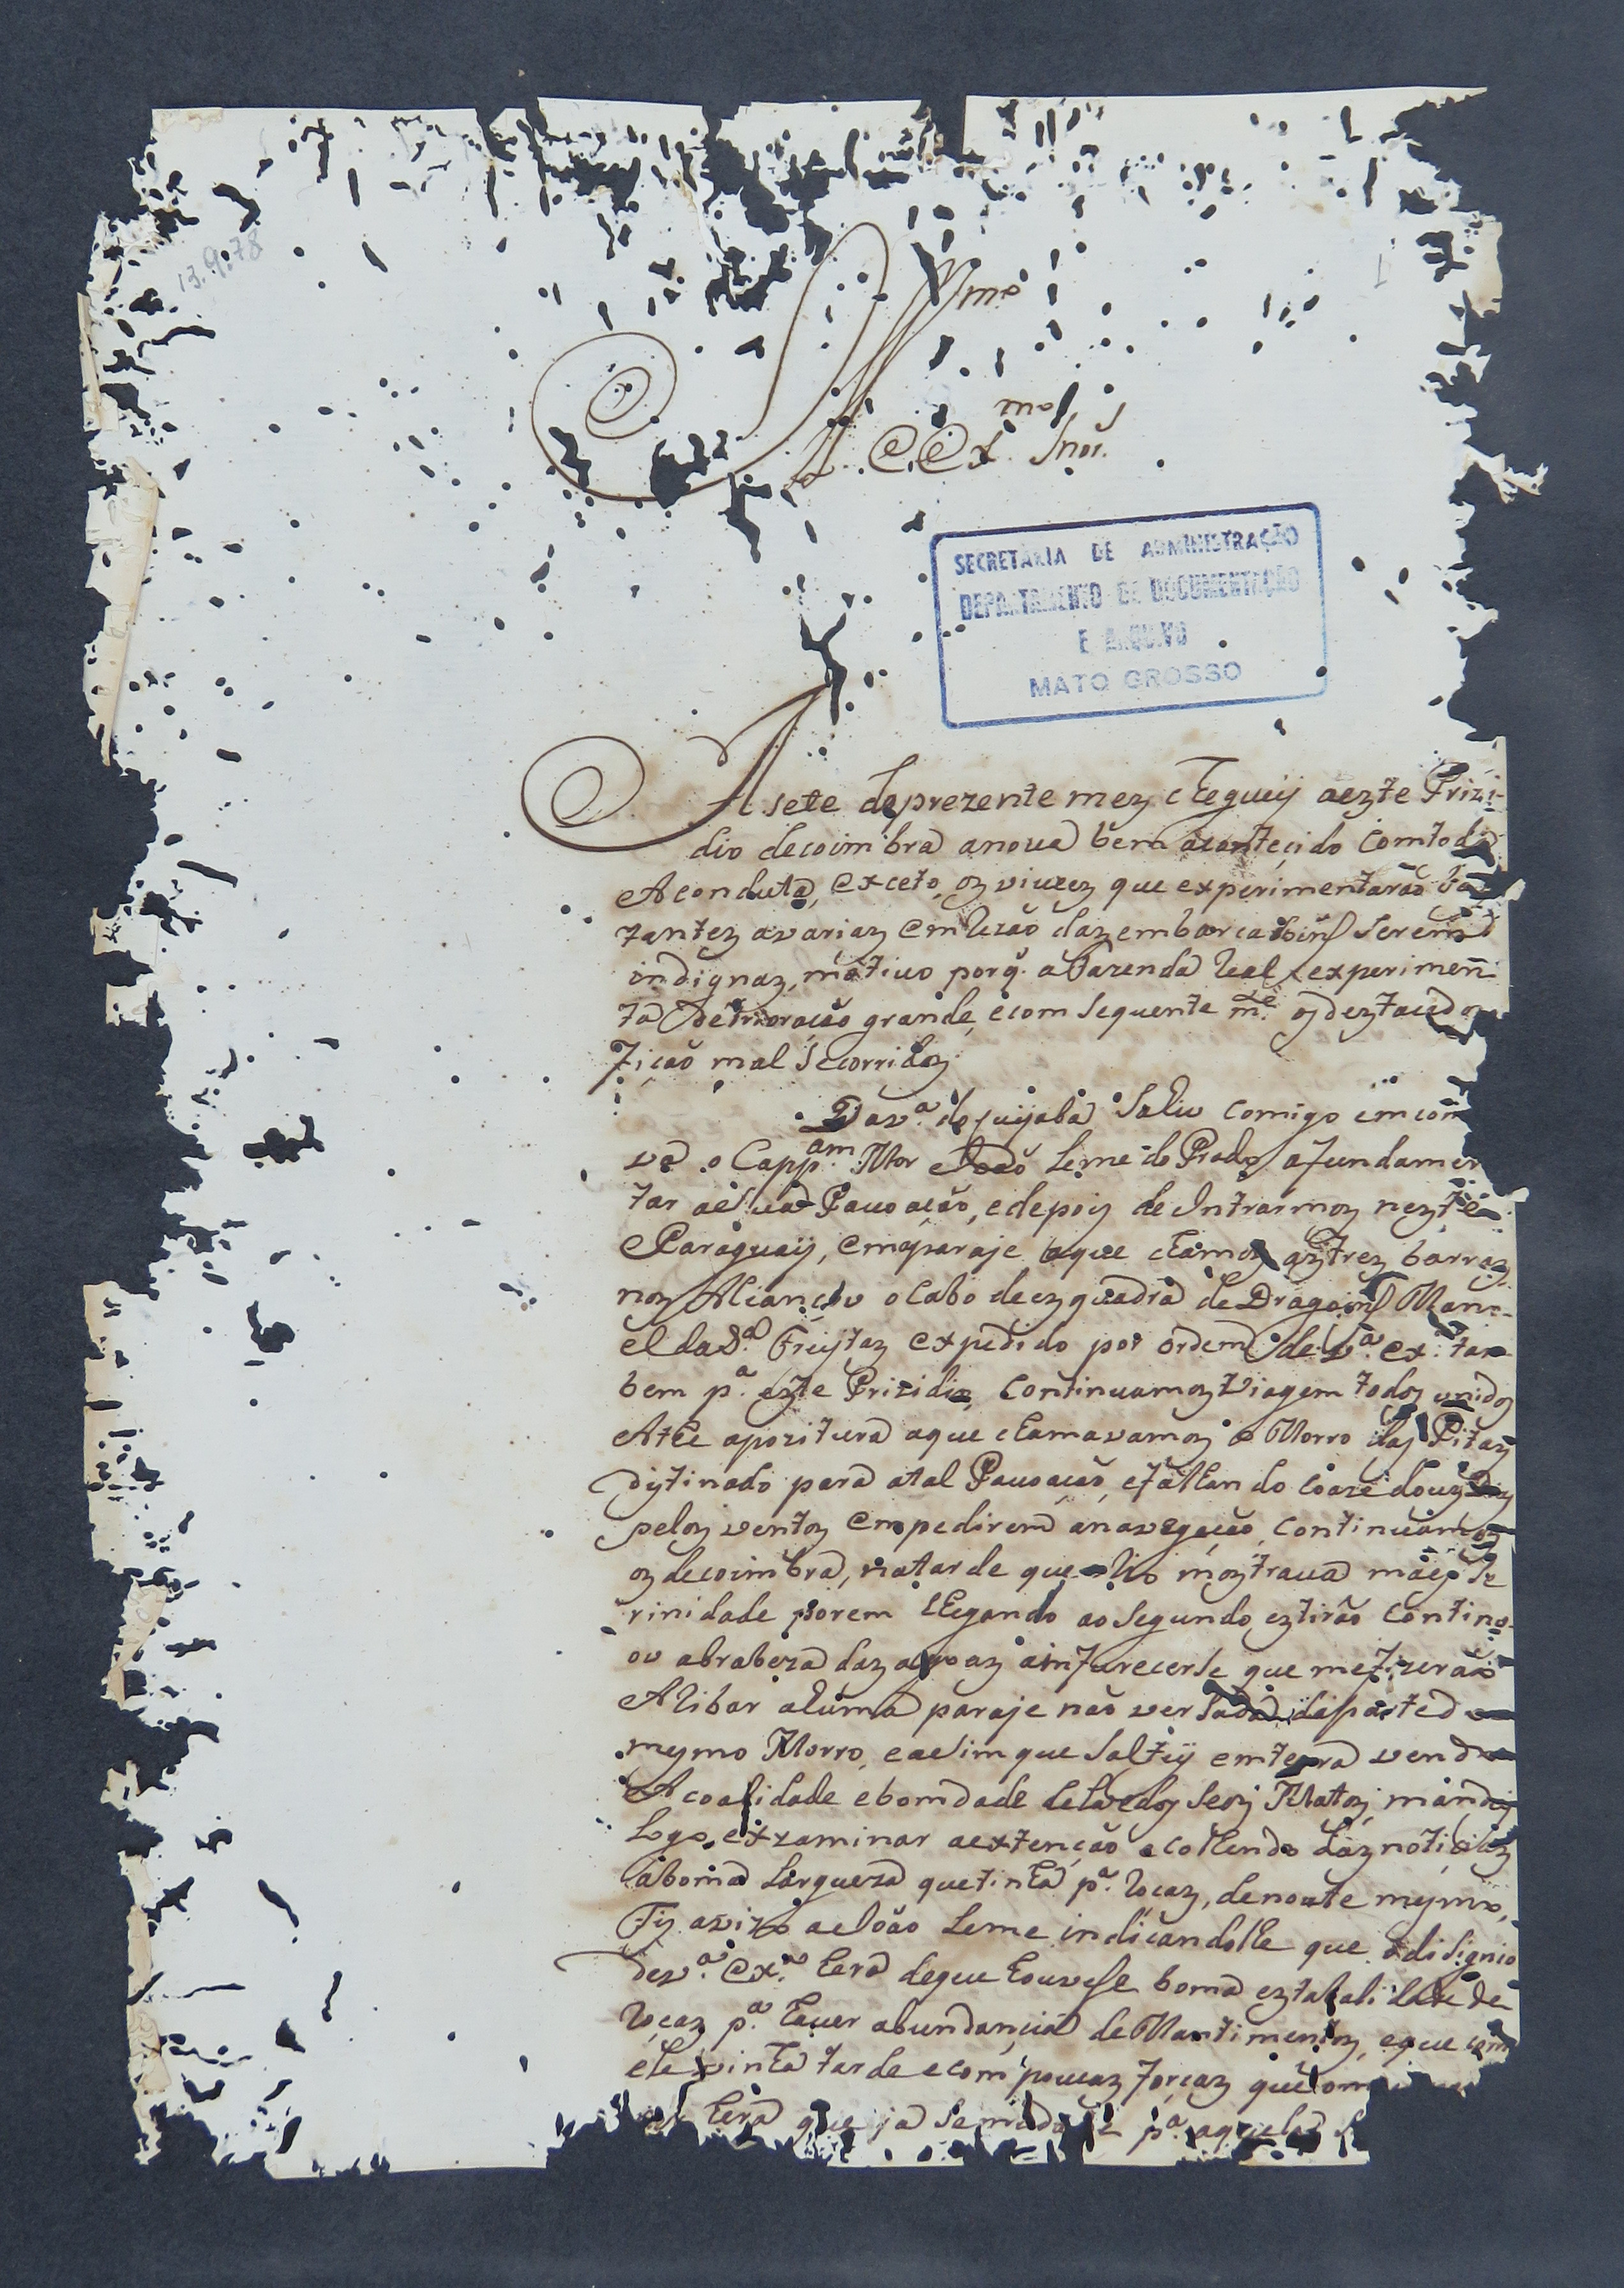 13.9.78
1
Illmo
e Exmo Snor.
SECRETARIA DE ADMINISTRAÇÃO
DEPARTAMENTO DE DOCUMENTAÇÃO
E ARQUIVO
MATO GROSSO
A sete do prezente mez cheguey aezte Prizi-
dio decoimbra anoua bem acontecido Comtoda
Aconduta, exceto, oz viurez que experimentarão ba
ztantez avariaz em rezão daz embarcasoins Serem
indignaz, motiuo porq. aFazenda Real experimen
ta detrioração grande, econsequente m.e oz deztacado
ficão mal Socorridoz.
Dav.a do Cuyabá Sahio Comigo em con
va o Cappam. Mor João Leme do Prado afundamen
tar aesua Pauoação, edepoiz de Intrarmoz nezte
Paraguay, emoparaje aque chamoz aztrez barraz
noz Alcançou oCabo deezquadra de Dragoins Mano-
el daS.a Freytaz expedido por ordem de V.a Ex.a tan
bem p.a ezte Prizidio, Continuamoz Viagem todoz unidoz
Athe apozitura aque chamavamoz o Morro daz Pitaz
dztinado para atal Pauoação, efalhando Coaze douz
peloz ventoz empedirem anavegação, Continuamoz
oz decoimbra, natarde que o Rio moztraua maiz Se
rinidade porem chegando ao Segundo eztirão Contino-
ou abrabeza daz agoaz ainfurecerse que mefizerão
Aribar aluma paraje não versada daparted
mezmo Morro, eaSim que Saltey emterra vendo
Acoalidade ebomdade deTodoz Seoz Matoz mandey
Logo, exzaminar aextenção ecolhendo daz noticiaz
aboma Largueza quetinha p.a Roçaz, denoute mezmo,
Fiz avizo aeJoão Leme indicandolhe que odisignio
deV.a Ex.a hera deque houvese boma eztabalidade de
Roçaz p.a hauer abundancia de Mantimentoz, eque com
ele vinha tarde ecom poucaz forçaz que
hera que ja Semuda p.a aquela